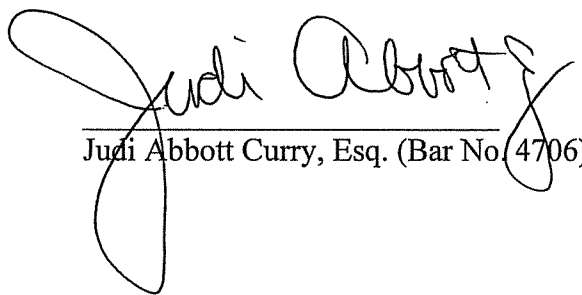 Judi Abbott
Judi Abbott Curry, Esq. (Bar No. 4706)